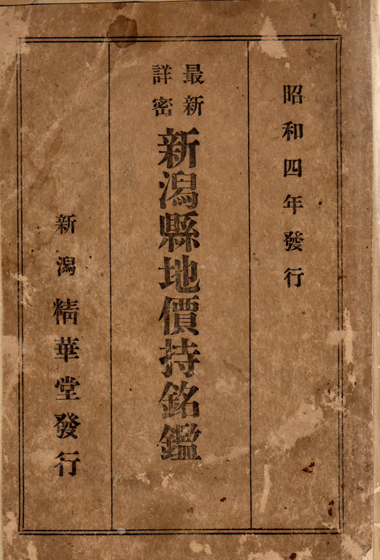 昭和四年發行
最新
詳密
新潟縣地價持銘鑑
新潟精華堂發行